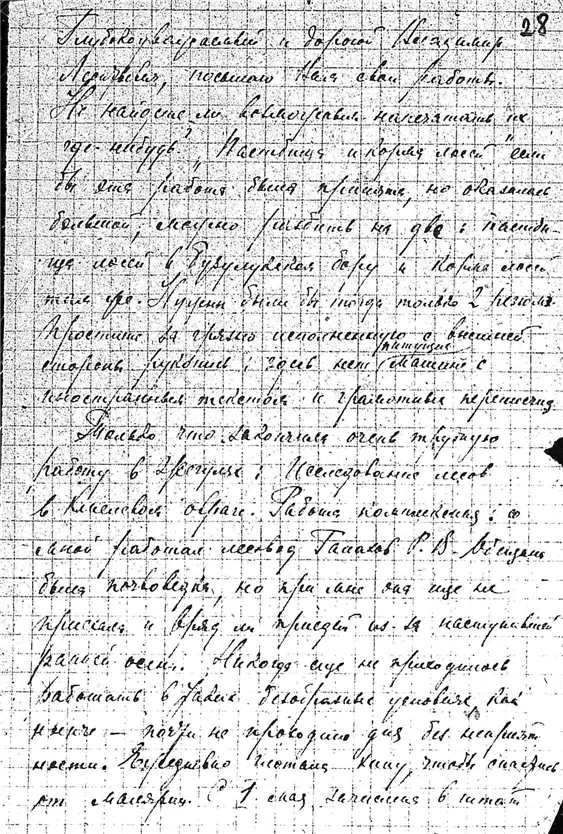 28
Глубокоуважаемый и дорогой Владимир
посылаю Вам свои работы.
Не найдете ли возможным напечатать их
где-нибудь? "Пастбища и корма лосей" если
бы эта работа была принята, но оказалась
большой, можно разбить на две: пастби-
ща лосей в Бузулукском бору и корма лосей
там же. Нужны были бы тогда только 2 резюме
Простите за грязно исполненную с внешней
стороны рукопись: здесь нет пишущих машин с
иностранным текстом и грамотных переписчиц
Только что закончил очень трудную
работу в : Исследование лесов
в овраге. Работа комплексная: со
мной работал лесовод Р. В. Обещана
была почвовед, но при мне она еще не
приехала и вряд ли приедет из-за наступившей
ранней осени. Никогда еще не приходилось
работать в таких безобразных условиях, как
нынче – почти не проходило дня без неприят-
ности. Ежедневно глотал хину, чтобы спастись
от малярии. С 1 мая зачислен в штат